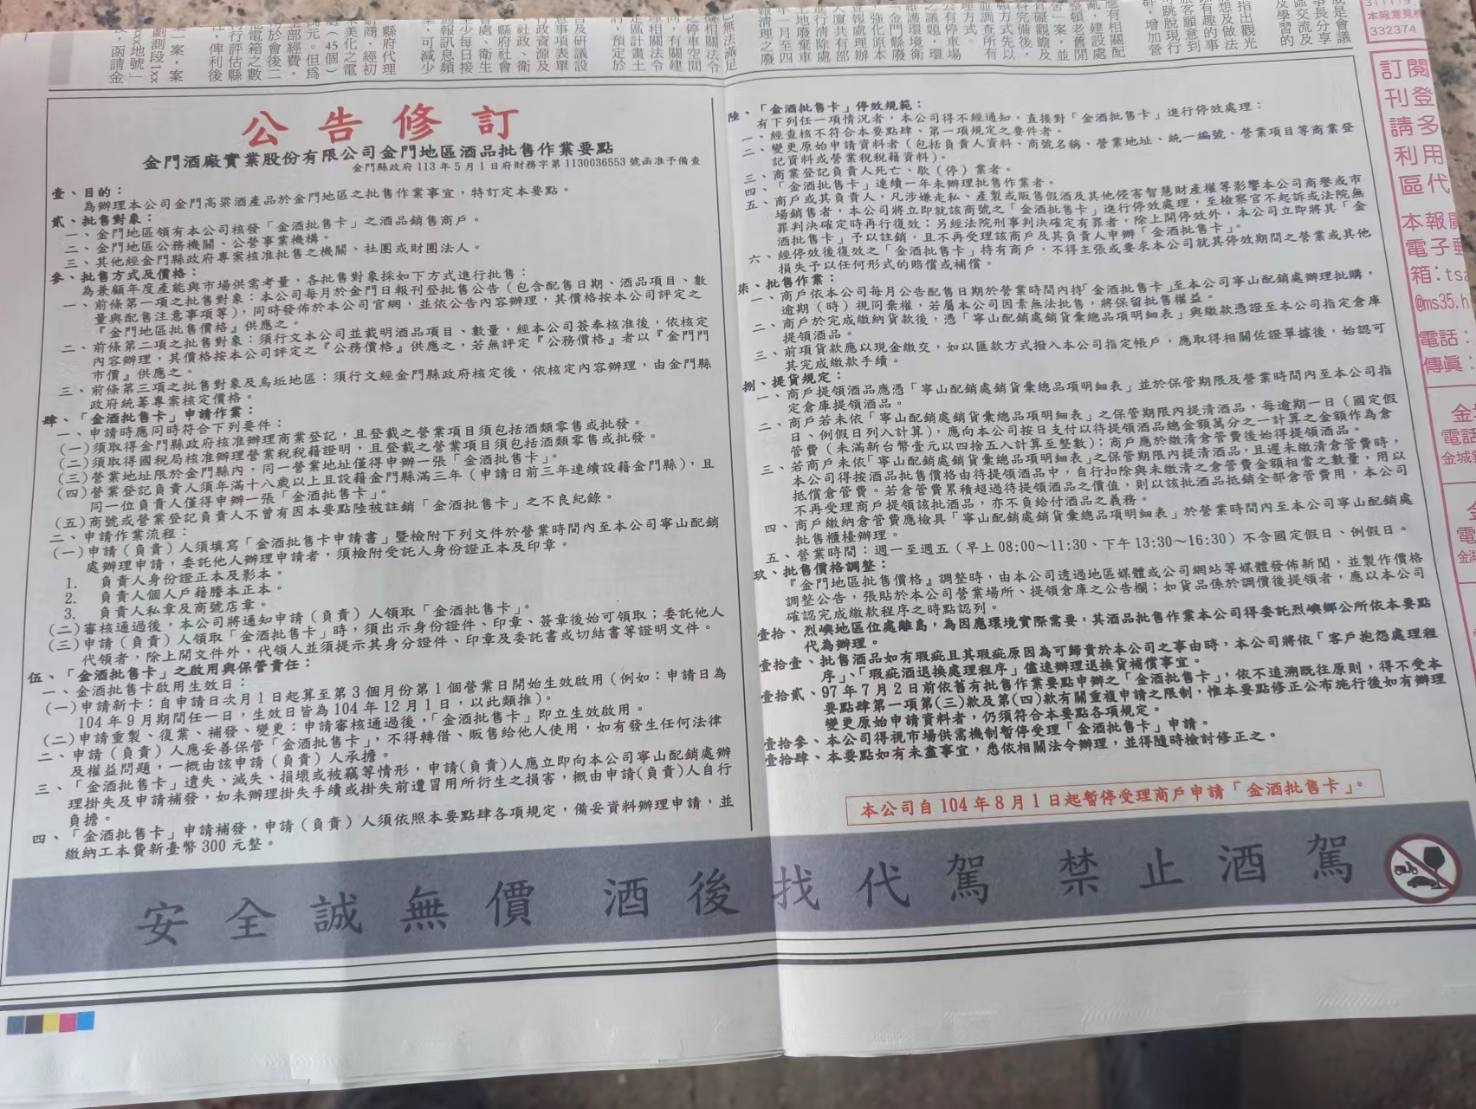 公告修訂
金門酒廠實業股份有限公司金門地區酒品批售作業要點
金門縣政府 113 年 5 月 1 日府財務字第 1130036553 號函准予備查
壹、目的：
為辦理本公司金門高粱酒產品於金門地區之批售作業事宜，特訂定本要點。
貳、批售對象：
一、金門地區領有本公司核發「金酒批售卡」之酒品銷售商戶。
二、金門地區公務機關、公營事業機構。
三、其他經金門縣政府專案核准批售之機關、社團或財團法人。
參、批售方式及價格：
為兼顧年度產能與市場供需考量，各批售對象採如下方式進行批售：
一、前條第一項之批售對象：本公司每月於金門日報刊登批售公告（包含配售日期、酒品項目、數
量與配售注意事項等），同時發佈於本公司官網，並依公告內容辦理，其價格按本公司評定之
『金門地區批售價格』供應之。
二、前條第二項之批售對象：須行文本公司並載明酒品項目、數量，經本公司簽奉核准後，依核定
內容辦理，其價格按本公司評定之『公務價格』供應之，若無評定『公務價格』者以『金門門
市價』供應之。
三、前條第三項之批售對象及烏坵地區：須行文經金門縣政府核定後，依核定內容辦理，由金門縣
政府統籌專案核定價格。
肆、「金酒批售卡」申請作業：
一、申請時應同時符合下列要件：
(一)須取得金門縣政府核准辦理商業登記，且登載之營業項目須包括酒類零售或批發。
(二)須取得國稅局核准辦理營業稅稅籍證明，且登載之營業項目須包括酒類零售或批發。
(三)營業地址限於金門縣內，同一營業地址僅得申辦一張「金酒批售卡」。
(四)營業登記負責人須年滿十八歲以上且設籍金門縣滿三年（申請日前三年連續設籍金門縣），且
同一位負責人僅得申辦一張「金酒批售卡」。
(五)商號或營業登記負責人不曾有因本要點陸被註銷「金酒批售卡」之不良紀錄。
二、申請作業流程：
(一)申請（負責）人須填寫「金酒批售卡申請書」暨檢附下列文件於營業時間內至本公司寧山配銷
處辦理申請，委託他人辦理申請者，須檢附受託人身份證正本及印章。
1. 負責人身份證正本及影本。
2. 負責人個人戶籍謄本正本。
3. 負責人私章及商號店章。
(二)審核通過後，本公司將通知申請（負責）人領取「金酒批售卡」。
(三)申請（負責）人領取「金酒批售卡」時，須出示身份證件、印章、簽章後始可領取；委託他人
代領者，除上開文件外，代領人並須提示其身分證件、印章及委託書或切結書等證明文件。
伍、「金酒批售卡」之啟用與保管責任：
一、金酒批售卡啟用生效日：
(一)申請新卡：自申請日次月 1 日起算至第 3 個月份第 1 個營業日開始生效啟用（例如：申請日為
104 年 9 月期間任一日，生效日皆為 104 年 12 月 1 日，以此類推）。
(二)申請重製、復業、補發、變更：申請審核通過後，「金酒批售卡」即立生效啟用。
二、申請（負責）人應妥善保管「金酒批售卡」，不得轉借、販售給他人使用，如有發生任何法律
及權益問題，一概由該申請（負責）人承擔。
三、「金酒批售卡」遺失、滅失、損壞或被竊等情形，申請(負責)人應立即向本公司寧山配銷處辦
理掛失及申請補發，如未辦理掛失手續或掛失前遭冒用所衍生之損害，概由申請(負責)人自行
負擔。
四、「金酒批售卡」申請補發，申請（負責）人須依照本要點肆各項規定，備妥資料辦理申請，並
繳納工本費新臺幣 300 元整。
陸、「金酒批售卡」停效規範：
有下列任一項情況者，本公司得不經通知，直接對「金酒批售卡」進行停效處理：
一、經查核不符合本要點肆、第一項規定之要件者。
二、變更原始申請資料者（包括負責人資料、商號名稱、營業地址、統一編號、營業項目等商業登
記資料或營業稅稅籍資料）。
三、商業登記負責人死亡、歇（停）業者。
四、「金酒批售卡」連續一年未辦理批售作業者。
五、商戶或其負責人，凡涉嫌走私、產製或販售假酒及其他侵害智慧財產權等影響本公司商譽或市
場銷售者，本公司將立即就該商號之「金酒批售卡」進行停效處理，至檢察官不起訴或法院無
罪判決確定時再行復效；另經法院刑事判決確定有罪者，除上開停效外，本公司立即將其「金
酒批售卡」予以註銷，且不再受理該商戶及其負責人申辦「金酒批售卡」。
六、經停效後復效之「金酒批售卡」持有商戶，不得主張或要求本公司就其停效期間之營業或其他
損失予以任何形式的賠償或補償。
柒、批售作業：
一、商戶依本公司每月公告配售日期於營業時間內持「金酒批售卡」至本公司寧山配銷處辦理批購，
逾期（時）視同棄權，若屬本公司因素無法批售，將保留批售權益。
二、商戶於完成繳納貨款後，憑「寧山配銷處銷貨彙總品項明細表」與繳款憑證至本公司指定倉庫
提領酒品。
三、前項貨款應以現金繳交，如以匯款方式撥入本公司指定帳戶，應取得相關佐證單據後，始認可
其完成繳款手續。
捌、提貨規定：
一、商戶提領酒品應憑「寧山配銷處銷貨彙總品項明細表」並於保管期限及營業時間內至本公司指
定倉庫提領酒品。
二、商戶若未依「寧山配銷處銷貨彙總品項明細表」之保管期限內提清酒品，每逾期一日（國定假
日、例假日列入計算），應向本公司按日支付以待提領酒品總金額萬分之一計算之金額作為倉
管費（未滿新台幣壹元以四捨五入計算至整數）；商戶應於繳清倉管費後始得提領酒品。
三、若商戶未依「寧山配銷處銷貨彙總品項明細表」之保管期限內提清酒品，且遲未繳清倉管費時，
本公司得按酒品批售價格由待提領酒品中，自行扣除與未繳清之倉管費金額相當之數量，用以
抵償倉管費。若倉管費累積超過待提領酒品之價值，則以該批酒品抵銷全部倉管費用，本公司
不再受理商戶提領該批酒品，亦不負給付酒品之義務。
四、商戶繳納倉管費應檢具「寧山配銷處銷貨彙總品項明細表」於營業時間內至本公司寧山配銷處
批售櫃檯辦理。
五、營業時間：週一至週五（早上 08:00～11:30、下午 13:30～16:30）不含國定假日、例假日。
玖、批售價格調整：
『金門地區批售價格』調整時，由本公司透過地區媒體或公司網站等媒體發佈新聞，並製作價格
調整公告，張貼於本公司營業場所、提領倉庫之公告欄；如貨品係於調價後提領者，應以本公司
確認完成繳款程序之時點認列。
壹拾、烈嶼地區位處離島，為因應環境實際需要，其酒品批售作業本公司得委託烈嶼鄉公所依本要點
代為辦理。
壹拾壹、批售酒品如有瑕疵且其瑕疵原因為可歸責於本公司之事由時，本公司將依「客戶抱怨處理程
序」、「瑕疵酒退換處理程序」儘速辦理退換貨補償事宜。
壹拾貳、97 年 7 月 2 日前依舊有批售作業要點申辦之「金酒批售卡」，依不追溯既往原則，得不受本
要點肆第一項第(三)款及第(四)款有關重複申請之限制，惟本要點修正公布施行後如有辦理
變更原始申請資料者，仍須符合本要點各項規定。
壹拾參、本公司得視市場供需機制暫停受理「金酒批售卡」申請。
壹拾肆、本要點如有未盡事宜，悉依相關法令辦理，並得隨時檢討修正之。
本公司自 104 年 8 月 1 日起暫停受理商戶申請「金酒批售卡」。
安全誠無價 酒後找代駕 禁止酒駕